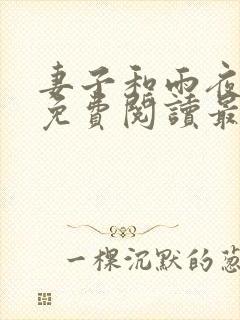 妻子和雨夜
免費閱讀最
一棵沉默的蔥